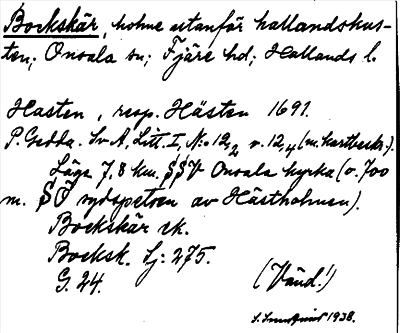 Bockskär, holme utanför hallandskus-
ten; Onsala sn; Fjäre hd; Hallands l.
Hasten, resp. Hästen 1691.
P. Gedda. Sv A, Litt. I, No 12,2 o. 12,4 (m. kartbeskr.).
Läge 7,8 km. SSV Onsala kyrka (o. 700
m. SÖ sydspetsen av Hästholmen).
Bockskär ek.
Bocksk. Lj: 275.
G. 24.
(Vänd!)
1938.